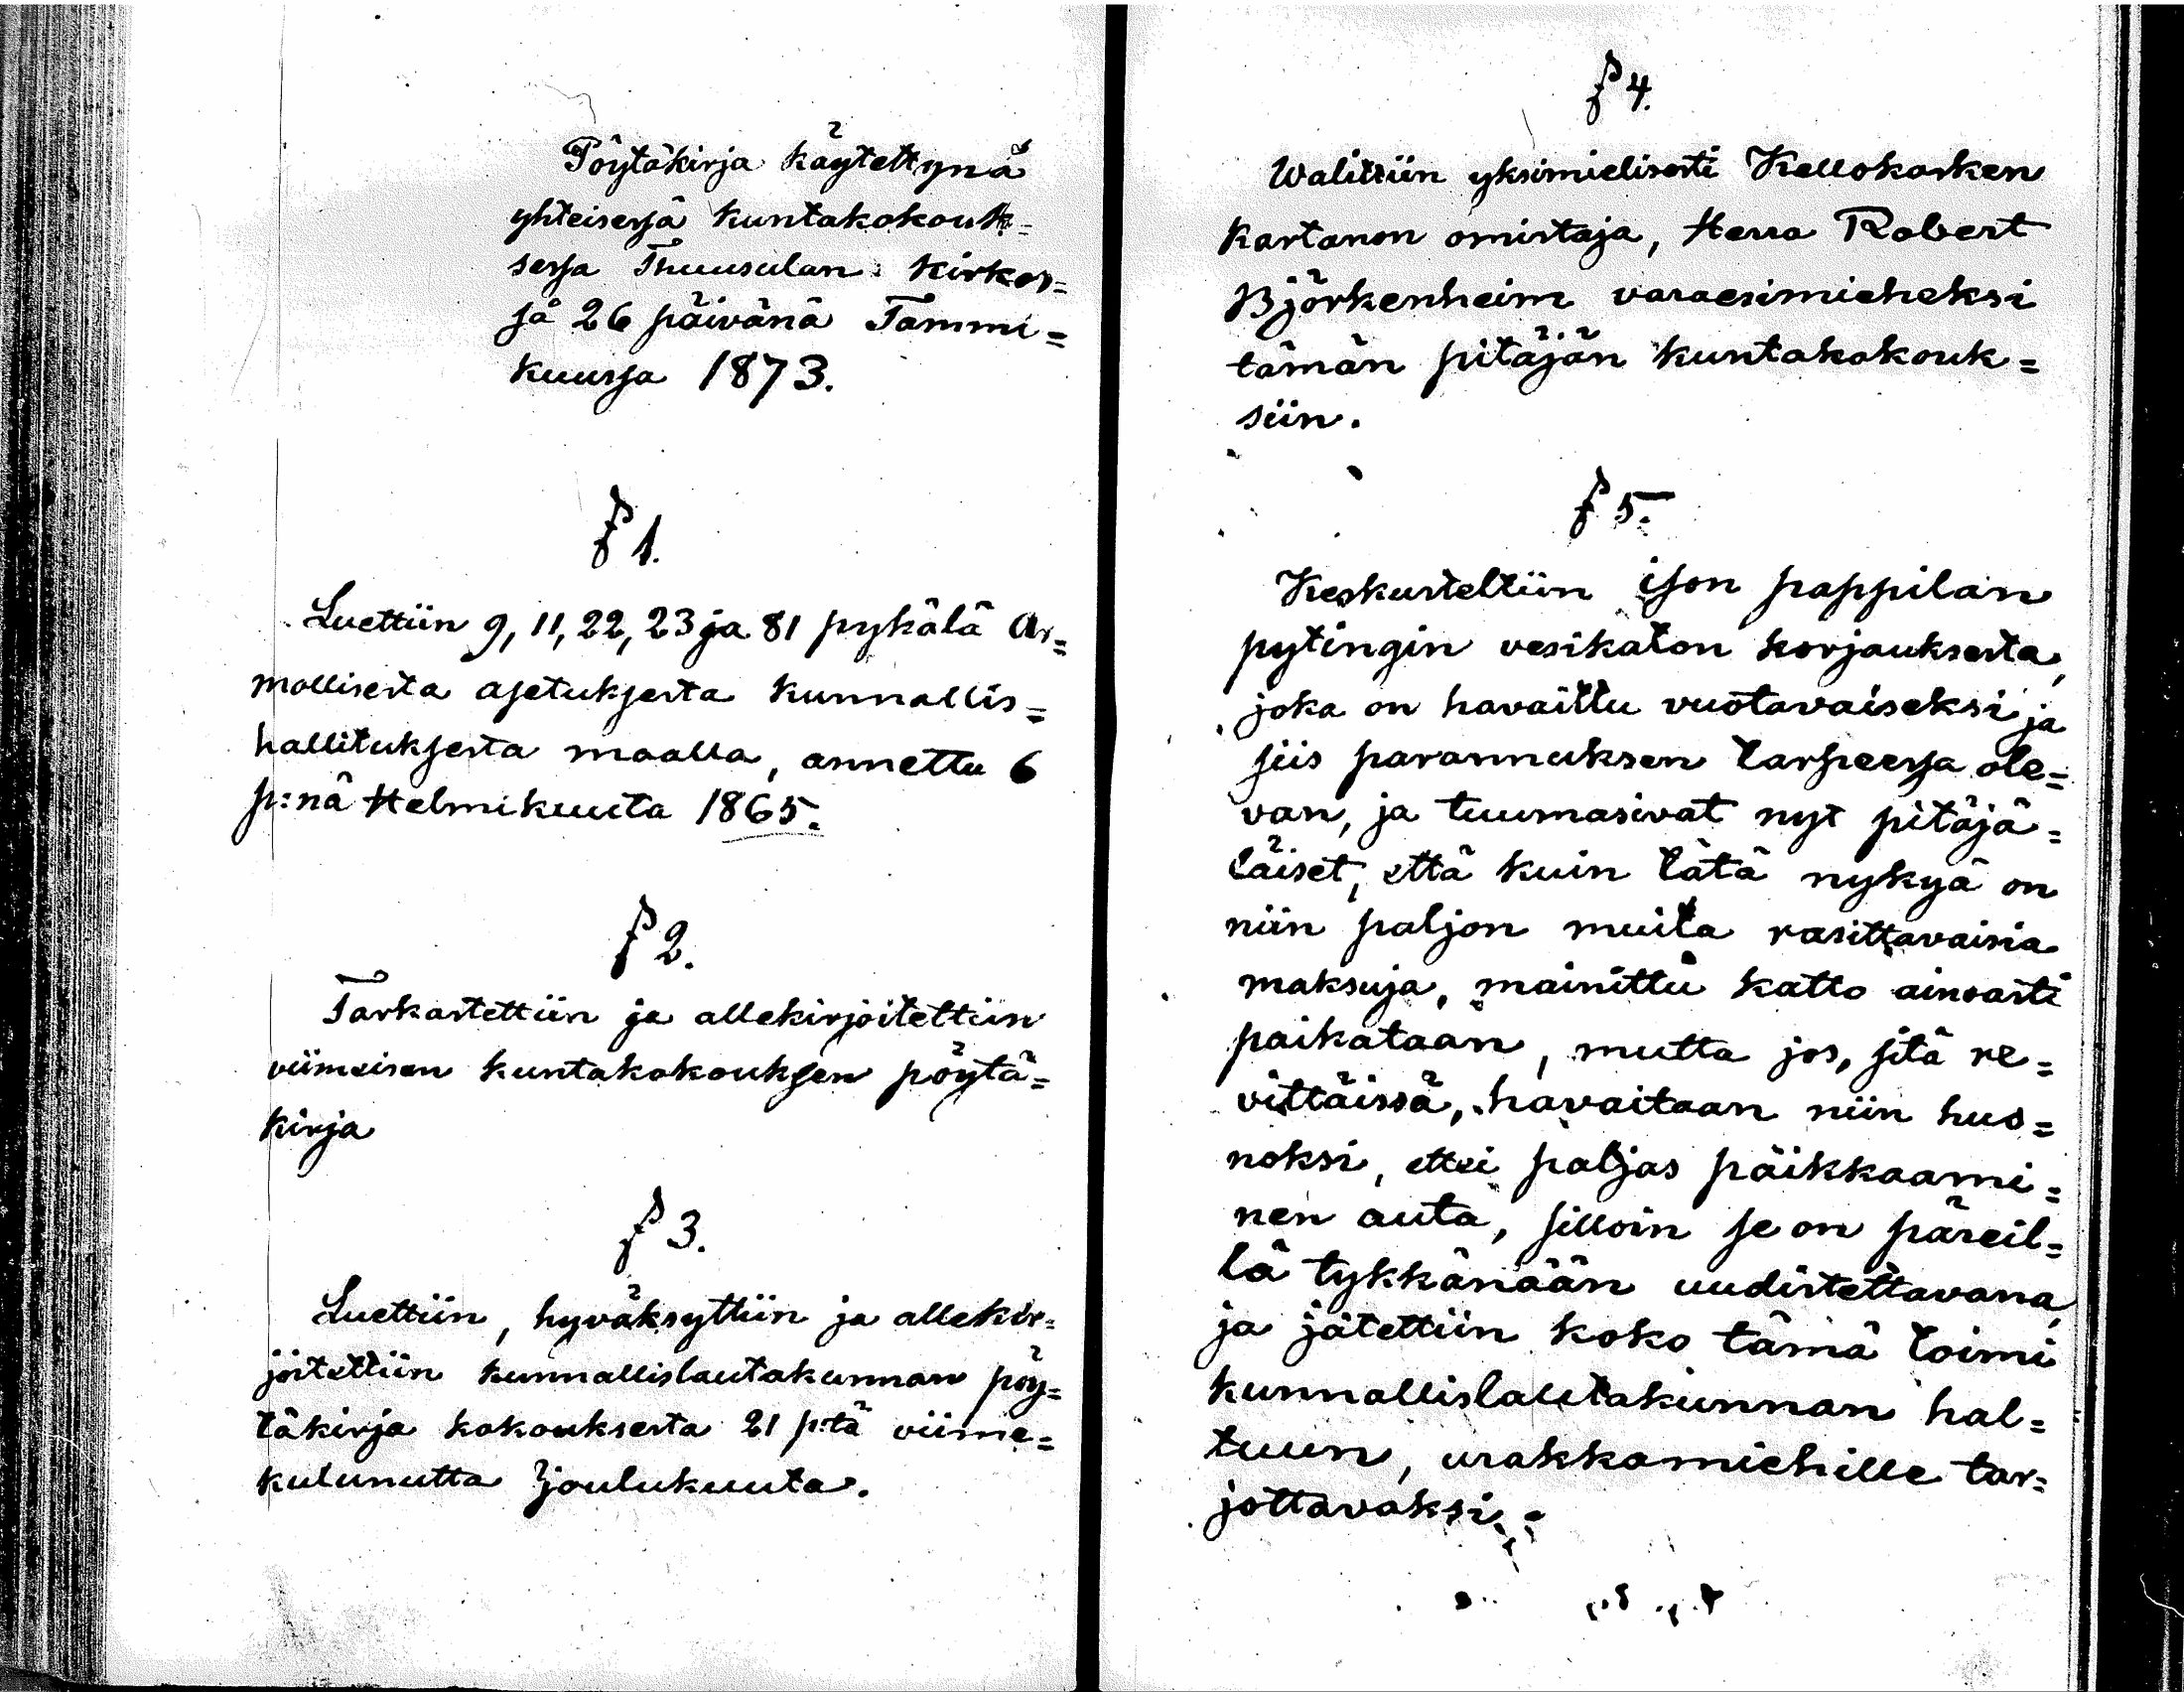 Pöytäkirja käytettynä
yhteisessä kuntakokouk=
sessa Thuusulan kirkos=
sa 26 päivänä Tammi=
kuussa 1873.
§ 1.
Luettiin 9, 11, 22, 23 ja 81 pykälä Ar=
mollisesta asetuksesta kunnallis=
hallituksesta maalla, annettu 6
p:nä Helmikuuta 1865.
§ 2.
Tarkastettiin ja allekirjoitettiin
viimeisen kuntakokouksen pöytä=
kirja
§ 3.
Luettiin, hyväksyttiin ja allekir=
joitettiin kunnallislautakunnan pöy=
täkirja kokouksesta 21 p:tä viime=
kulunutta joulukuuta.
§ 4.
Walittiin yksimielisesti Kellokosken
kartanon omistaja, Herra Robert
Björkenheim varaesimieheksi
tämän pitäjän kuntakokouk=
siin.
§ 5.
Keskusteltiin ison pappilan
pytingin vesikaton korjauksesta,
joka on havaittu vuotavaiseksi ja
siis parannuksen tarpeessa ole=
van, ja tuumasivat nyt pitäjä=
läiset, että kuin tätä nykyä on
niin paljon muita rasittavaisia
maksuja, mainittu katto ainoasti
paikataan, mutta jos, sitä re=
vittäissä, havaitaan niin huo=
noksi, ettei paljas paikkaami=
nen auta, silloin se on päreil=
lä tykkänään uudistettavana,
ja jätettiin koko tämä toimi
kunnallislautakunnan hal=
tuun, urakkamiehille tar=
jottavaksi.